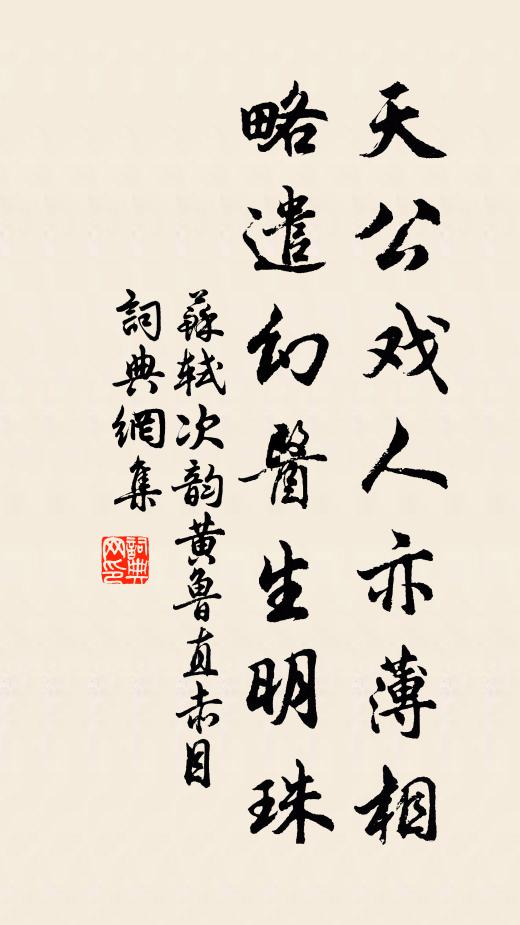 天公戏人亦薄相
略遣幻醫生明珠
蘇軾次韵黄魯直赤目
詞典網集
詞典
网印